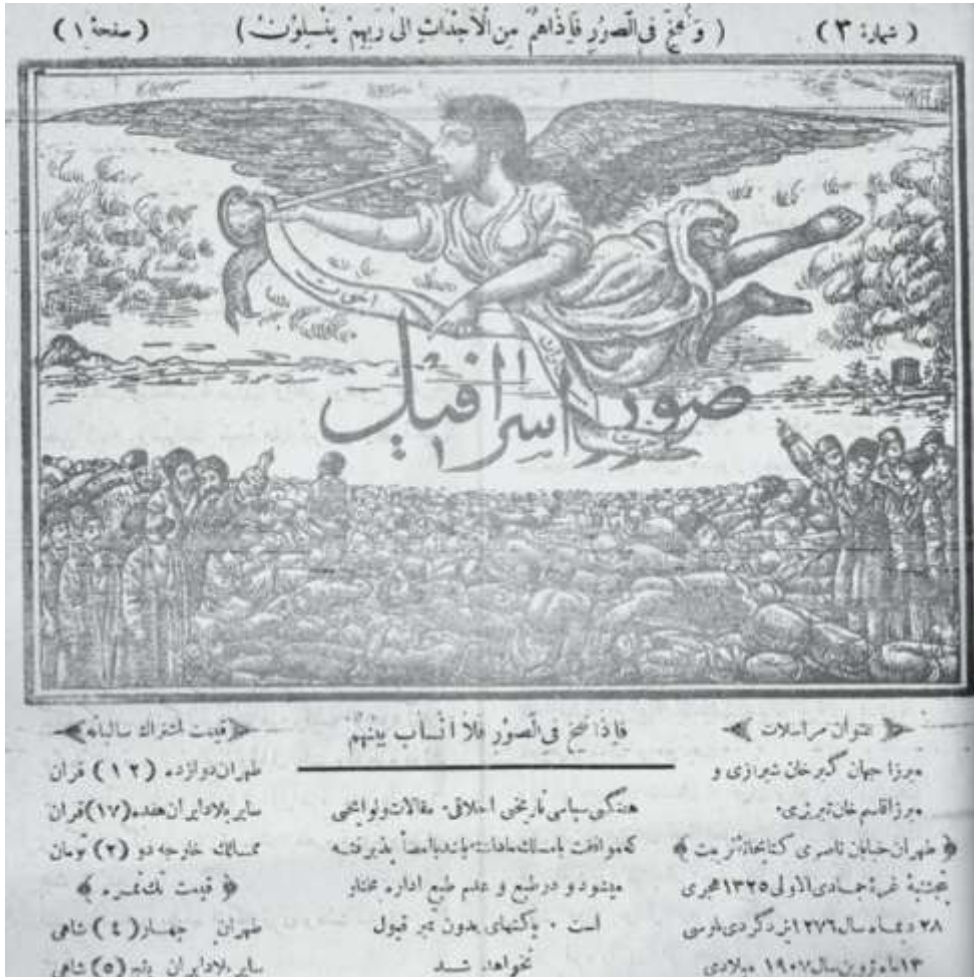 ( شمارهٔ ۳ )
( وَنُفِخَ فِی الصُّورِ فَاِذَاهُمْ مِنَ الْاَجْدَاثِ اِلیٰ رَبِّهِمْ یَنْسِلُونَ )
( صفحهٔ ۱ )
اخوت
صور اسرافیل
عنوان مراسلات
میرزا جهان گیرخان شیرازی و
میرزا قاسم خان تبریزی
﴿ طهران خیابان ناصری کتابخانهٔ تربیت ﴾
پنجشنبهٔ غرهٔ جمادی الاولی ۱۳۲۵ هجری
۲۸ دیماه سال ۱۲۷۶ یزدگردی پارسی
۱۳ ماه ژوین سال ۱۹۰۷ میلادی
فَاِذَا نُفِخَ فِی الصُّورِ فَلَا اَنْسَابَ بَیْنَهُمْ
هفتگی سیاسی تاریخی اخلاقی · مقالات و لوایحی
که موافقت با مسلک ما داشته باشد با امضا پذیرفته
میشود و در طبع و عدم طبع اداره مختار
است · پاکتهای بدون تمبر قبول
نخواهد شد
قیمت اشتراک سالیانه
طهران دوازده ( ۱۲ ) قران
سایر بلاد ایران هفده ( ۱۷ ) قران
ممالک خارجه دو ( ۲ ) تومان
﴿ قیمت تک نمره ﴾
طهران چهار ( ٤ ) شاهی
سایر بلاد ایران پنج ( ۵ ) شاهی